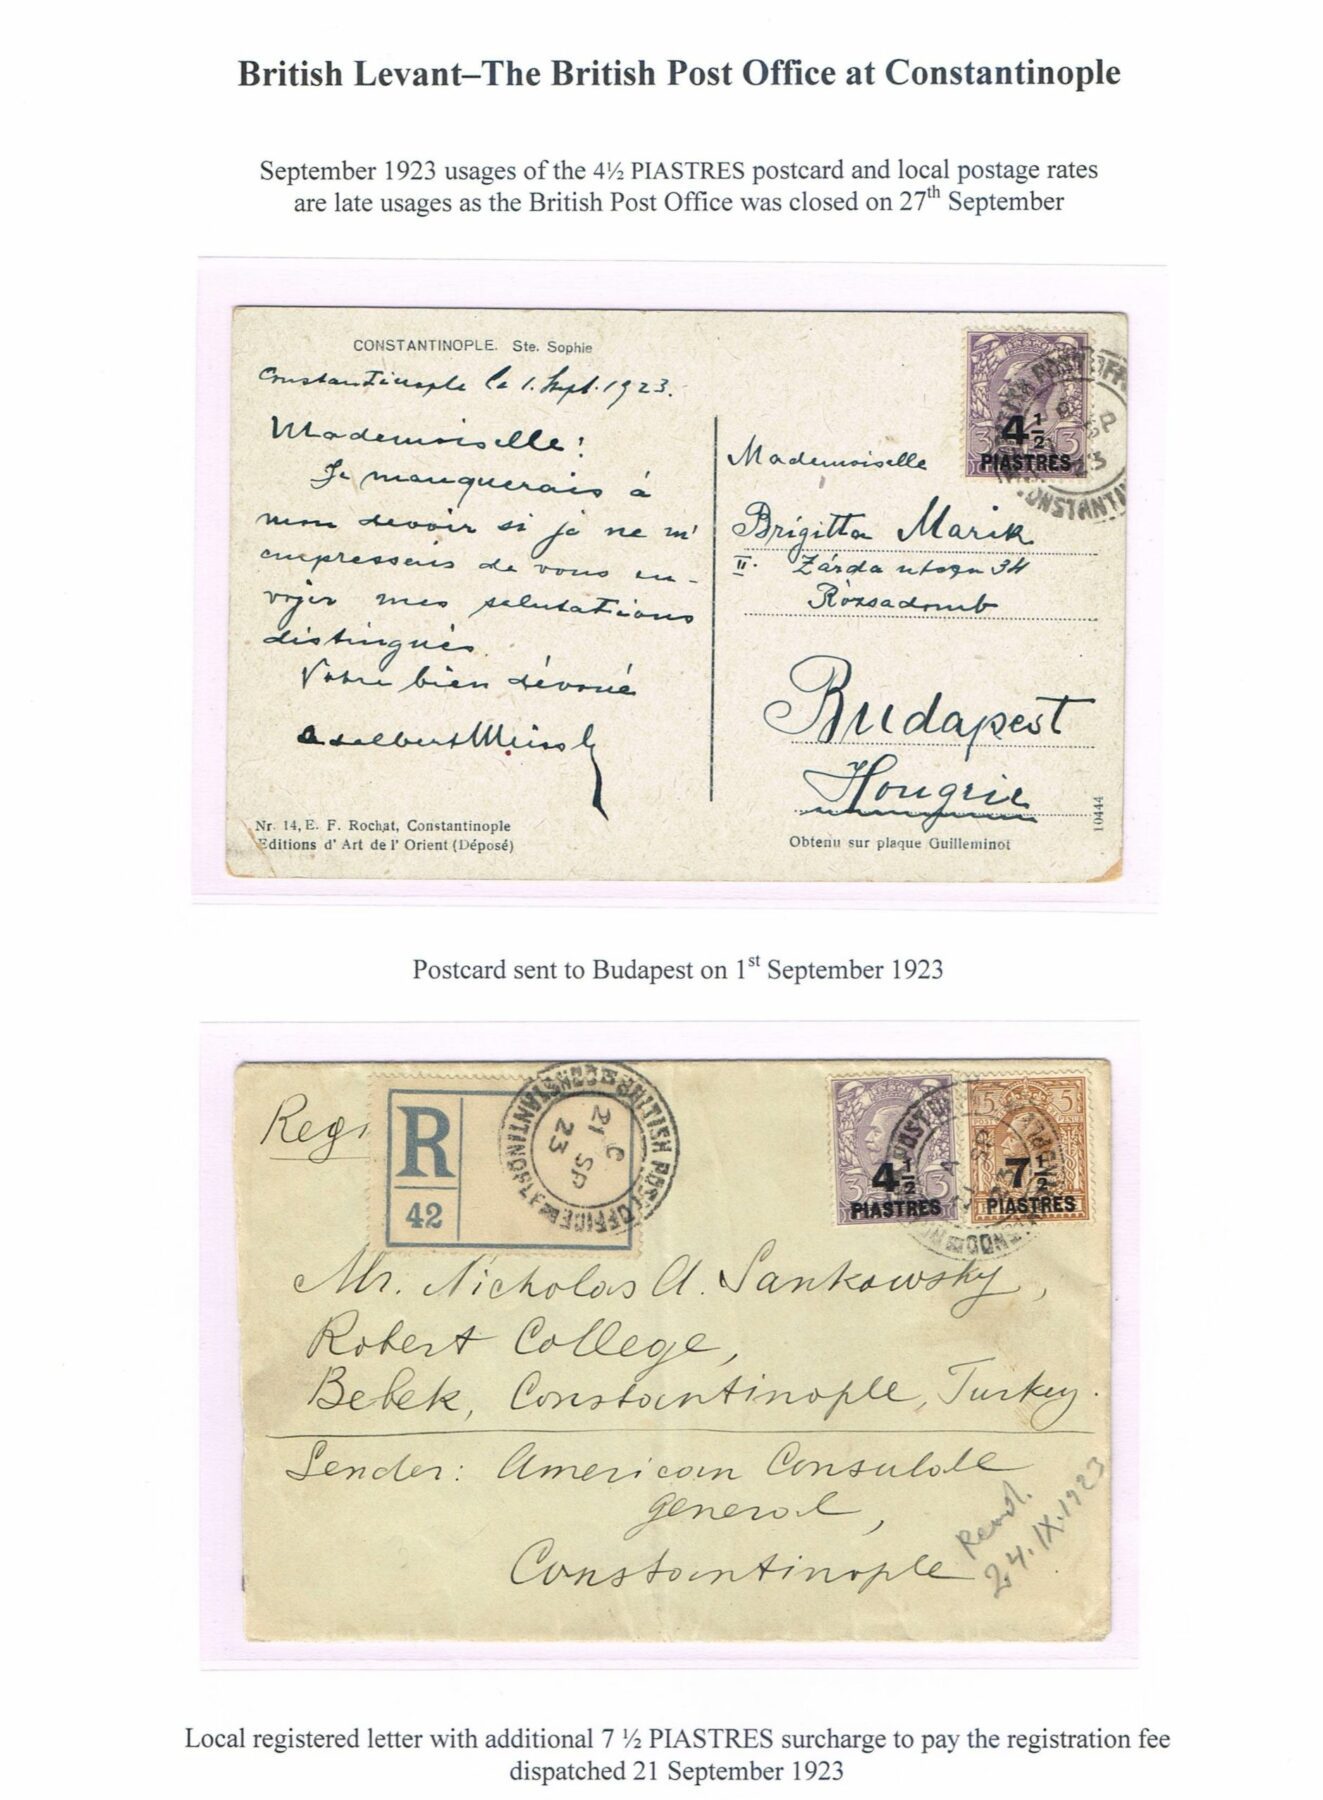 British Levant–The British Post Office at Constantinople
September 1923 usages of the 4½ PIASTRES postcard and local postage rates
are late usages as the British Post Office was closed on 27th September
CONSTANTINOPLE. Ste. Sophie
Constantinople le 1. Sept. 1923.
Mademoiselle!
Je manquerais à
mon devoir si je ne m'
empressais de vous en-
voyer mes salutations
distingués.
Votre bien dévoué
Nr. 14, E. F. Rochat, Constantinople
Editions d' Art de l' Orient (Déposé)
3 3
4½
PIASTRES
BRITISH POST OFFICE
SP
23
CONSTANTIN
Mademoiselle
Brigitta Marik
II. Zárda utsza 34
Rózsadomb
Budapest
Hongrie
10444
Obtenu sur plaque Guilleminot
Postcard sent to Budapest on 1st September 1923
Regi
R
42
BRITISH POST OFFICE CONSTANTINOPLE
C
21 SP
23
3 3
4½
PIASTRES
5 5
7½
PIASTRES
POST
A
SP
23
Mr. Nicholas A. Sankowsky,
Robert College,
Bebek, Constantinople, Turkey.
Sender: American Consulate
General,
Constantinople
Recvd.
24.IX.1923
Local registered letter with additional 7 ½ PIASTRES surcharge to pay the registration fee
dispatched 21 September 1923